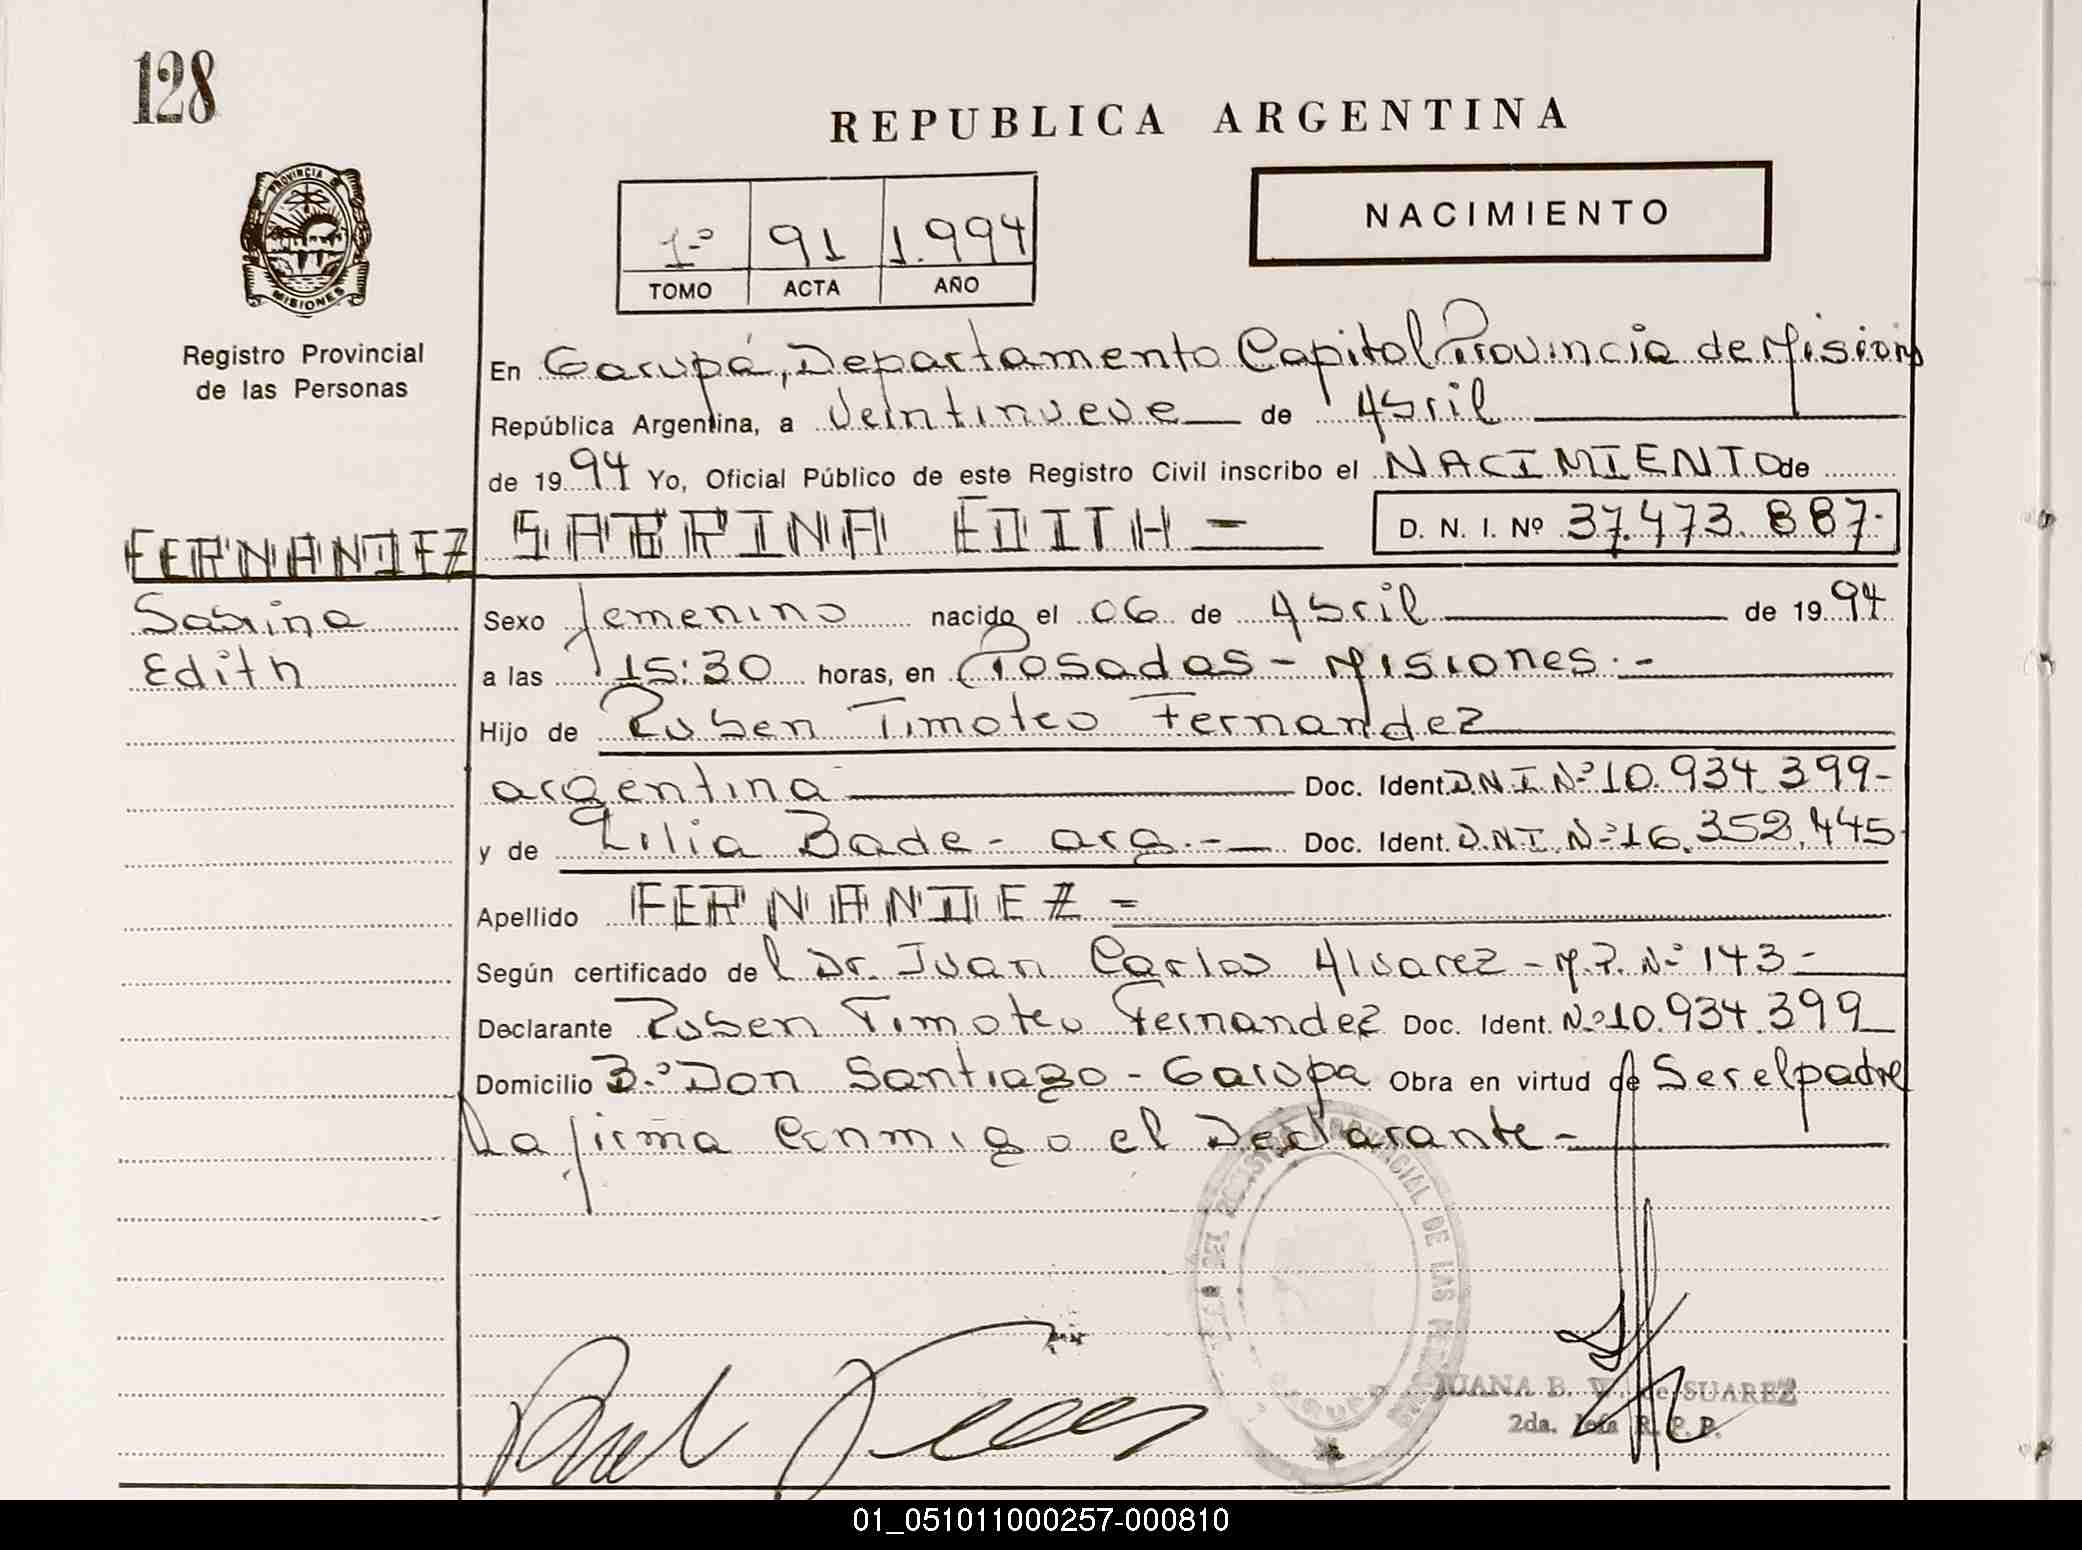 128
REPUBLICA ARGENTINA
PROVINCIA DE
MISIONES
Registro Provincial
de las Personas
1º 91 1.994
TOMO ACTA AÑO
NACIMIENTO
En Garupá, Departamento Capital Provincia de Misiones
República Argentina, a Veintinueve de Abril
de 1994 Yo, Oficial Público de este Registro Civil inscribo el NACIMIENTO de
FERNANDEZ SABRINA EDITH - D. N. I. Nº 37.473.887.
Sabrina
Edith
Sexo femenino nacido el 06 de Abril de 1994
a las 15:30 horas, en Posadas - Misiones.-
Hijo de Ruben Timoteo Fernandez
argentina Doc. Ident. D.N.I. Nº 10.934.399-
y de Lilia Bade - arg.- Doc. Ident. D.N.I. Nº 16.352.445-
Apellido FERNANDEZ -
Según certificado del Dr. Juan Carlos Alvarez - M.P. Nº 143-
Declarante Ruben Timoteo Fernandez Doc. Ident. Nº 10.934.399
Domicilio Bº Don Santiago - Garupa Obra en virtud de Ser el padre
La firma Conmigo el Declarante-
DEL REGISTRO PROVINCIAL DE LAS PERSONAS
JUANA B. V. de SUAREZ
2da. Jefa R. P. P.
01_051011000257-000810